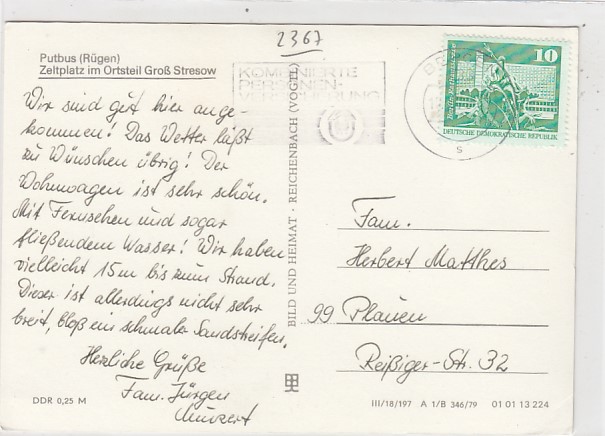 2367
Putbus (Rügen)
Zeltplatz im Ortsteil Groß Stresow
KOMBINIERTE
PERSONEN-
10
DEUTSCHE DEMOKRATISCHE REPUBLIK
s
Wir sind gut hier ange-
kommen! Das Wetter läßt
zu Wünschen übrig! Der
Wohnwagen ist sehr schön.
Mit Fernsehen und sogar
fließendem Wasser! Wir haben
vielleicht 15m bis zum Strand.
Dieser ist allerdings nicht sehr
breit, bloß ein schmaler Sandstreifen.
Herzliche Grüße
Fam. Jürgen
BILD UND HEIMAT · REICHENBACH (VOGTL)
Fam.
Herbert Matthes
99 Plauen
Reißiger-Str. 32
DDR 0,25 M
III/18/197 A 1/B 346/79 01 01 13 224